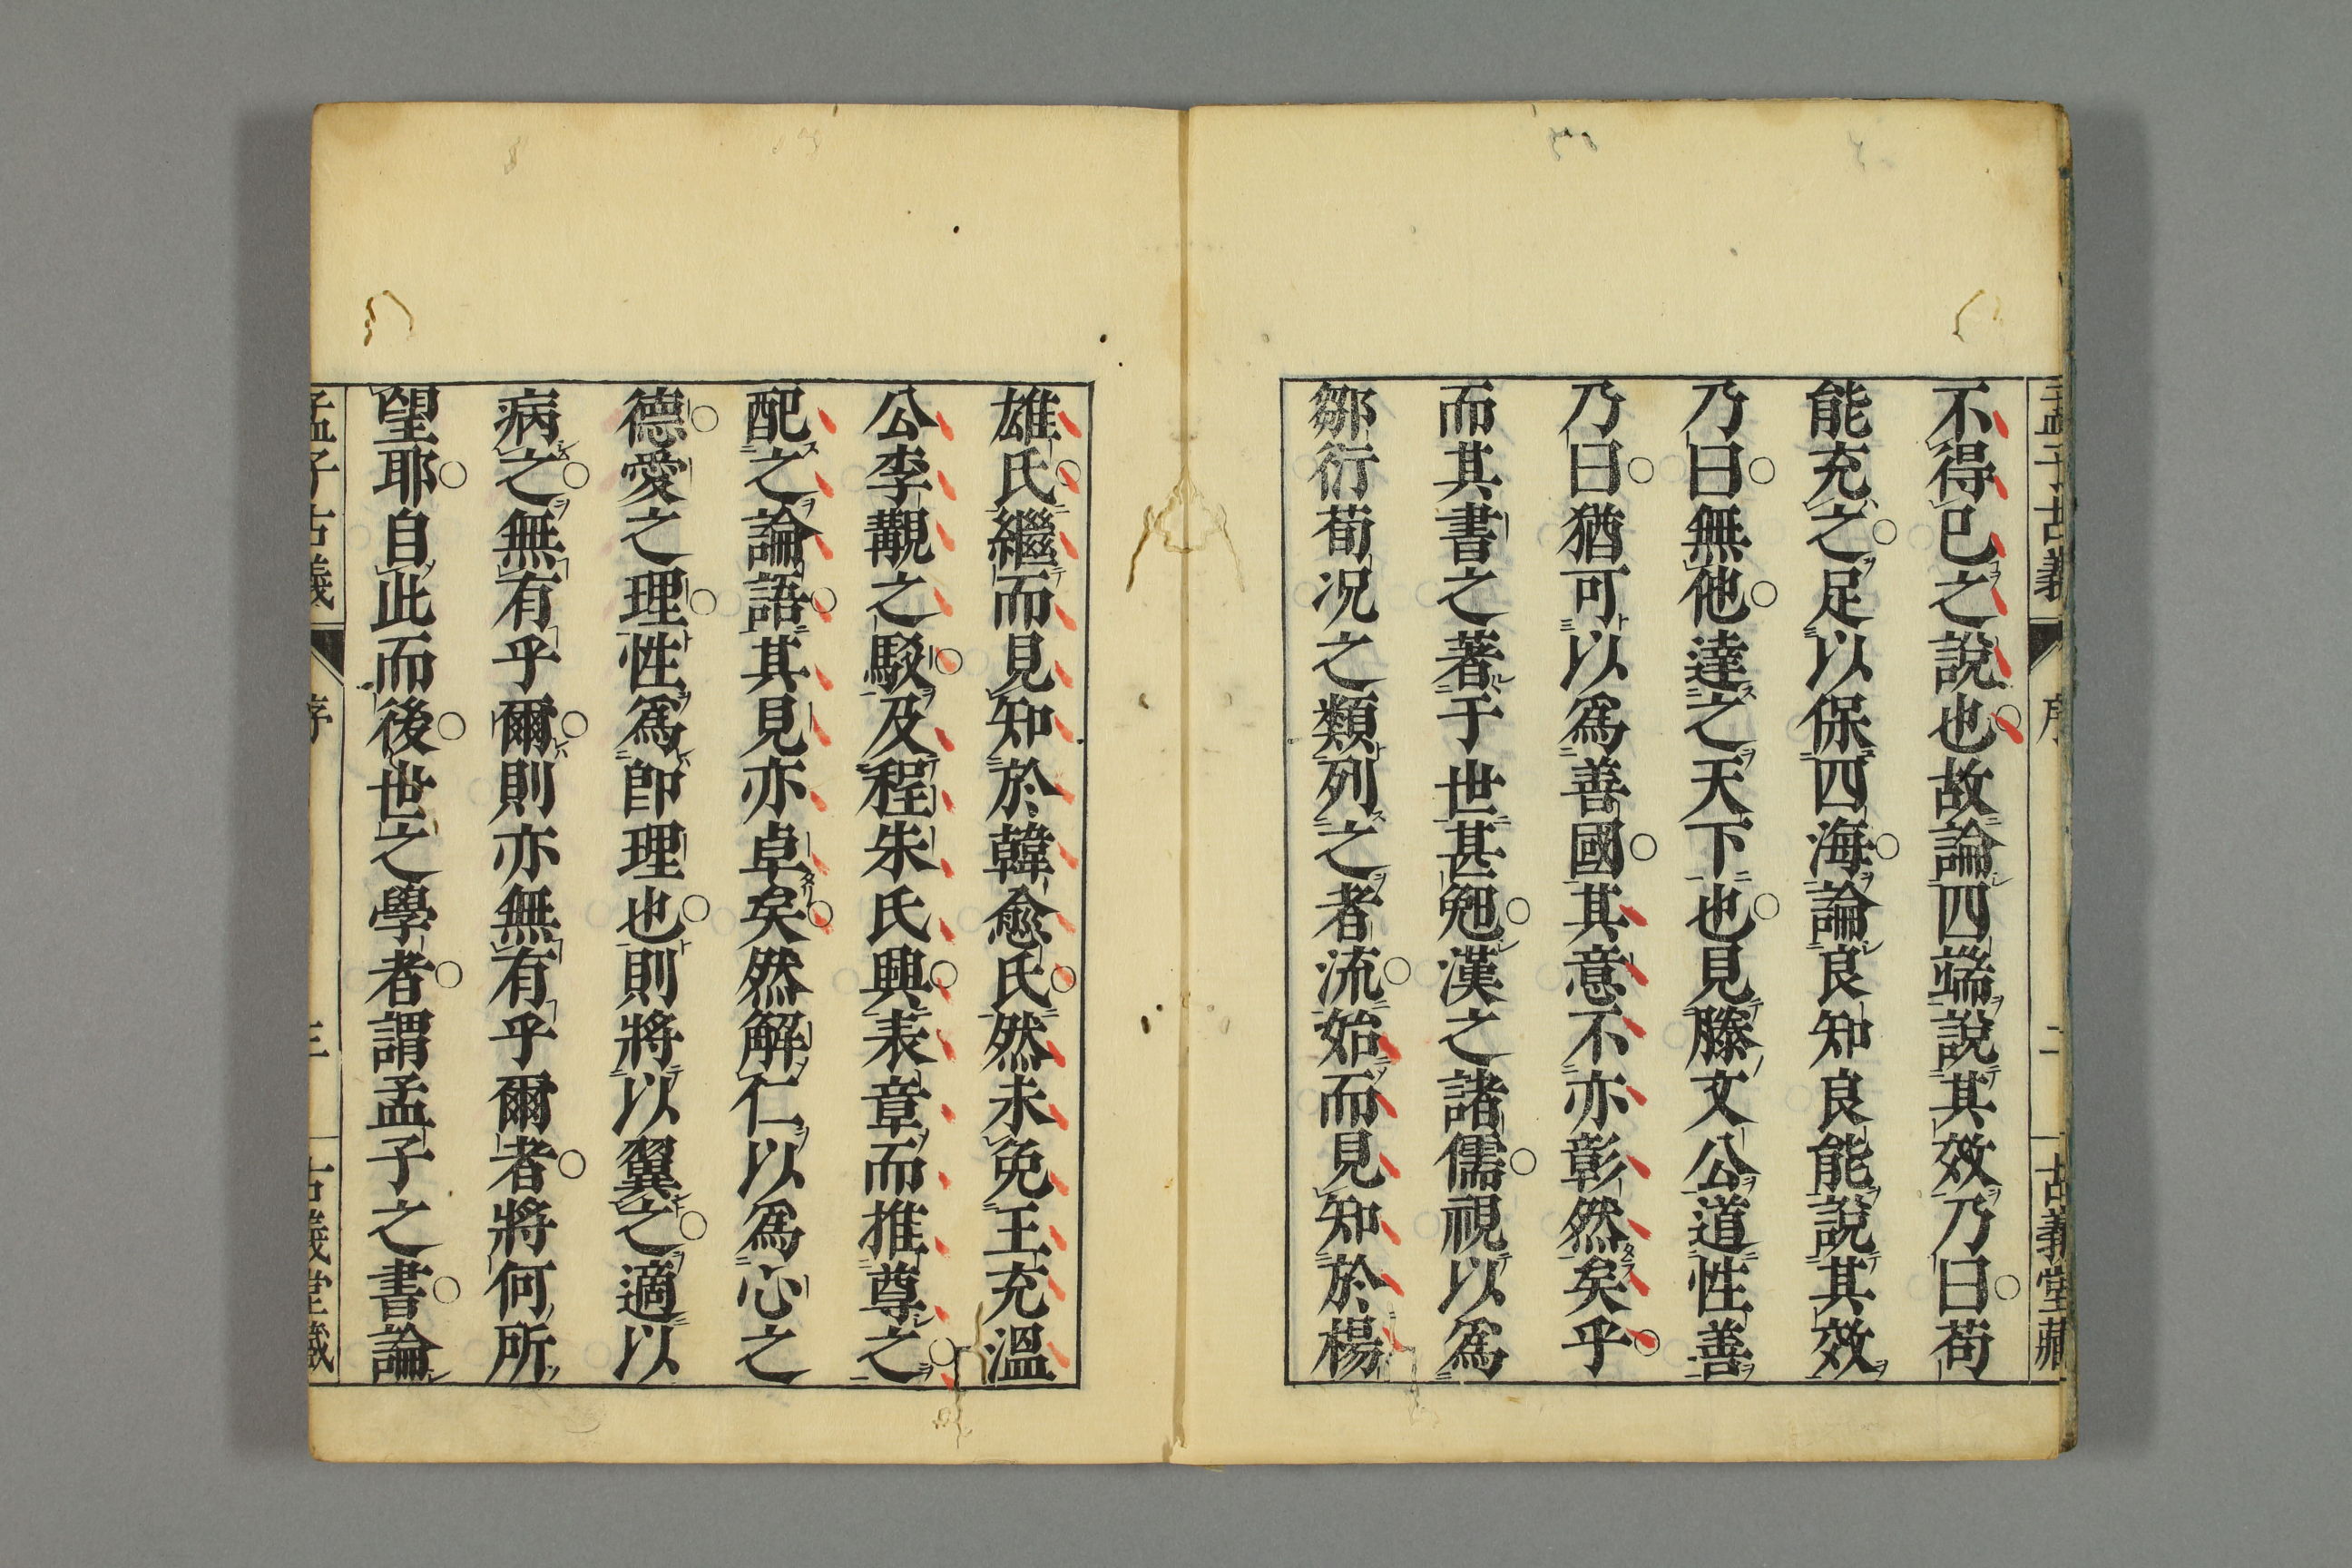 孟子古義 序 二 古義堂藏
不得已之説也故論四端説其效乃曰苟
能充之足以保四海論良知良能説其效
乃曰無他達之天下也見滕文公道性善
乃曰猶可以爲善國其意不亦彰然矣乎
而其書之著于世甚夗漢之諸儒視以爲
鄒衍荀况之類列之者流始而見知於楊
雄氏繼而見知於韓愈氏然未免王充溫
公李覯之駁及程朱氏興表章而推尊之
配之論語其見亦卓矣然解仁以爲心之
德愛之理性爲即理也則將以翼之適以
病之無有乎爾則亦無有乎爾者將何所
望耶自此而後世之學者謂孟子之書論
孟子古義 序 三 古義堂藏